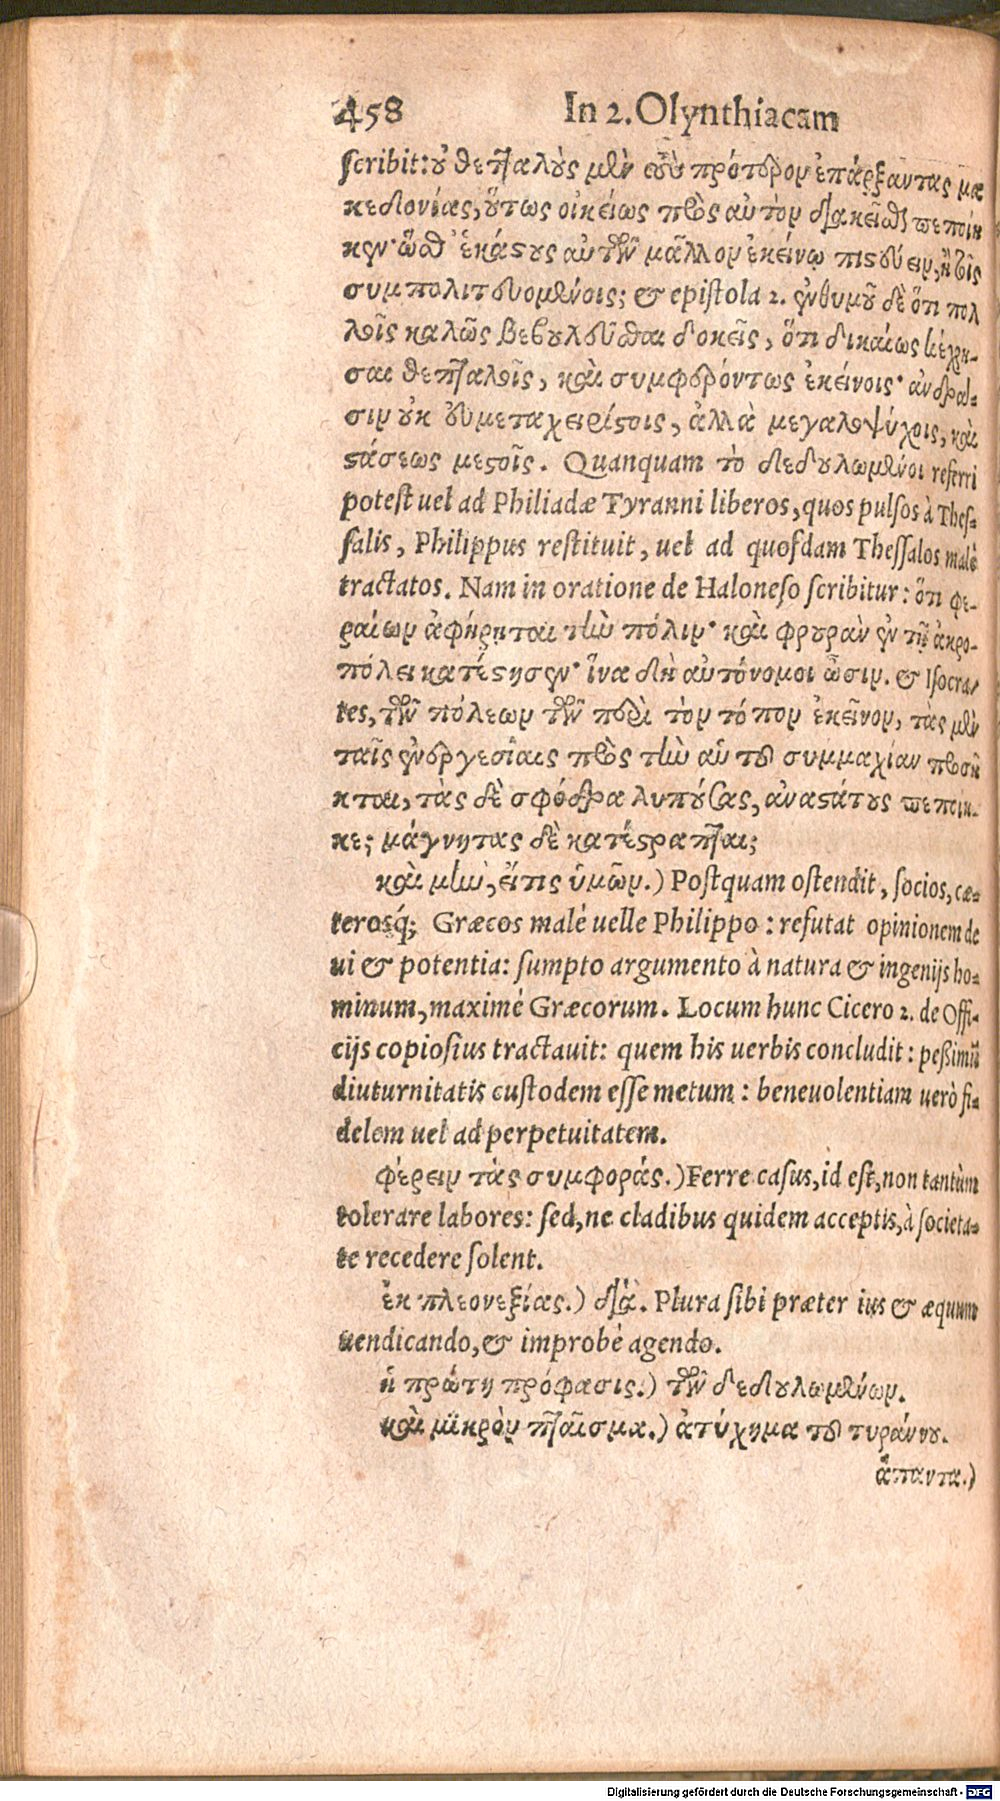 458 In 2. Olynthiacam
scribit: οὐ θετταλοὺς μὲν τοὺς πρότερον ἐπάρξαντας μα
κεδονίας, οὕτως οἰκείως πρὸς αὐτὸν διακεῖσθαι πεποίη
κεν· ὥσθ' ἑκάστους αὐτῶν μᾶλλον ἐκείνῳ πιστεύειν, ἢ τοῖς
συμπολιτευομένοις; & epistola 2. ἐνθυμοῦ δὲ ὅτι πολ
λοῖς καλῶς βεβουλεῦσθαι δοκεῖς, ὅτι δικαίως κέχρη-
σαι θετταλοῖς, καὶ συμφερόντως ἐκείνοις· ἀνδρά-
σιν οὐκ εὐμεταχειρίστοις, ἀλλὰ μεγαλοψύχοις, καὶ
στάσεως μεστοῖς. Quanquam τὸ δεδουλωμένοι referri
potest uel ad Philiadæ Tyranni liberos, quos pulsos à Thes-
salis, Philippus restituit, uel ad quosdam Thessalos malè
tractatos. Nam in oratione de Haloneso scribitur: ὅτι φε-
ραίων ἀφῄρηται τὴν πόλιν· καὶ φρουρὰν ἐν τῇ ἀκρο-
πόλει κατέστησεν· ἵνα δὴ αὐτόνομοι ὦσιν. & Isocra-
tes, τῶν πόλεων τῶν περὶ τὸν τόπον ἐκεῖνον, τὰς μὲν
ταῖς ἐνεργεσίαις πρὸς τὴν αὑτοῦ συμμαχίαν προσῆ
κται, τὰς δὲ σφόδρα λυπούσας, ἀναστάτους πεποίη-
κε; μάγνητας δὲ κατέστραπται;
καὶ μὴν, εἴ τις ὑμῶν.) Postquam ostendit, socios, cæ-
terosq́; Græcos malè uelle Philippo: refutat opinionem de
ui & potentia: sumpto argumento à natura & ingenijs ho-
minum, maximè Græcorum. Locum hunc Cicero 2. de Offi-
cijs copiosius tractauit: quem his uerbis concludit: peßimũ
diuturnitatis custodem esse metum: beneuolentiam uerò fi-
delem uel ad perpetuitatem.
φέρειν τὰς συμφοράς.) Ferre casus, id est, non tantùm
tolerare labores: sed, ne cladibus quidem acceptis, à societa-
te recedere solent.
ἐκ πλεονεξίας.) διά. Plura sibi præter ius & æquum
uendicando, & improbè agendo.
ἡ πρώτη πρόφασις.) τῶν δεδουλωμένων.
καὶ μικρὸν πταῖσμα.) ἀτύχημα τοῦ τυράννου.
ἅπαντα.)
Digitalisierung gefördert durch die Deutsche Forschungsgemeinschaft - DFG